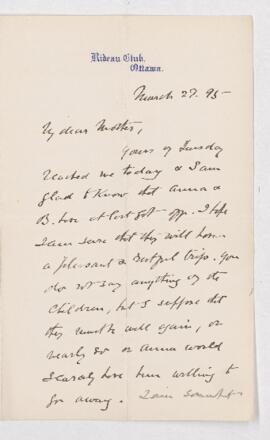 Rideau Club,
Ottawa.
March 27. 95
My dear Mother,
Yours of Tuesday
reached me today & I am
glad to know that Anna &
B. have at last got off. I hope
I am sure that they will have
a pleasant & restful trip. You
do not say anything of the
Children, but I suppose that
they must be well again, or
nearly so or Anna would
scarcely have been willing to
go away. I am